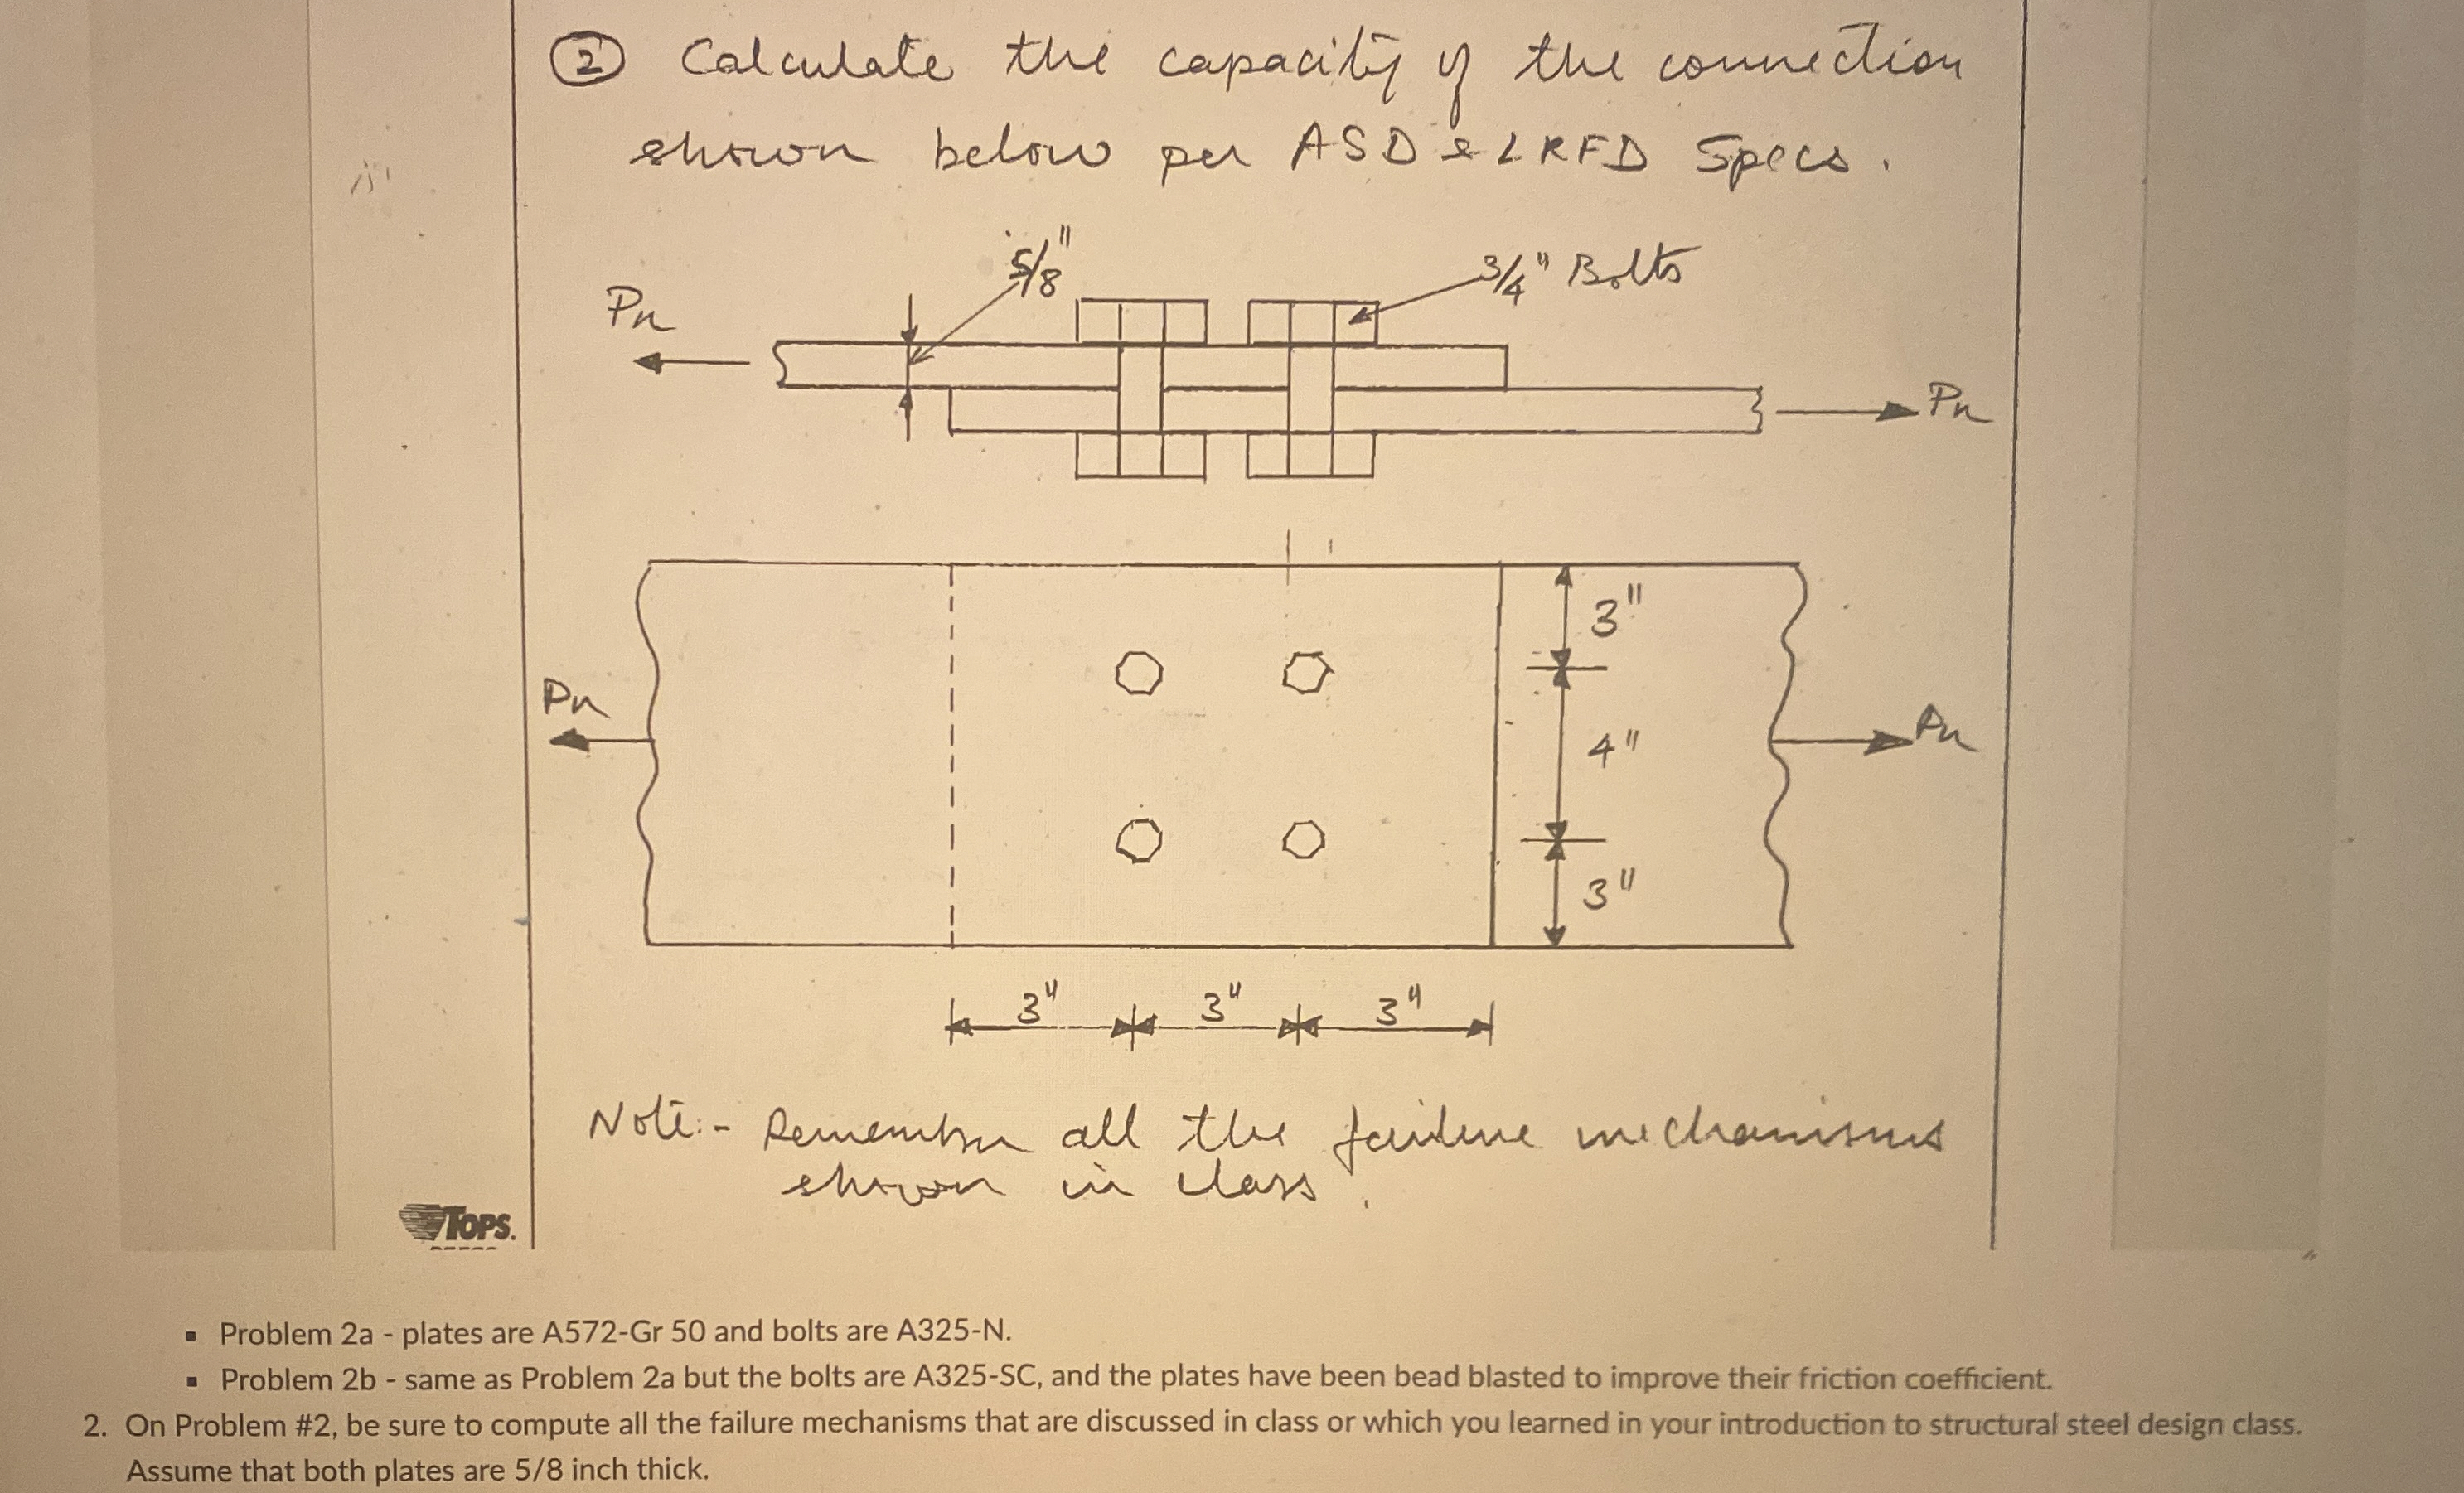 ② Calculate the capacity of the connection
shown below per ASD & LRFD Specs.
5/8"
3/4" Bolts
Pn
Pn
3"
Pn
4"
Pn
3"
3" 3" 3"
Note:- Remember all the failure mechanisms
shown in class.
TOPS.
▪ Problem 2a - plates are A572-Gr 50 and bolts are A325-N.
▪ Problem 2b - same as Problem 2a but the bolts are A325-SC, and the plates have been bead blasted to improve their friction coefficient.
2. On Problem #2, be sure to compute all the failure mechanisms that are discussed in class or which you learned in your introduction to structural steel design class.
Assume that both plates are 5/8 inch thick.